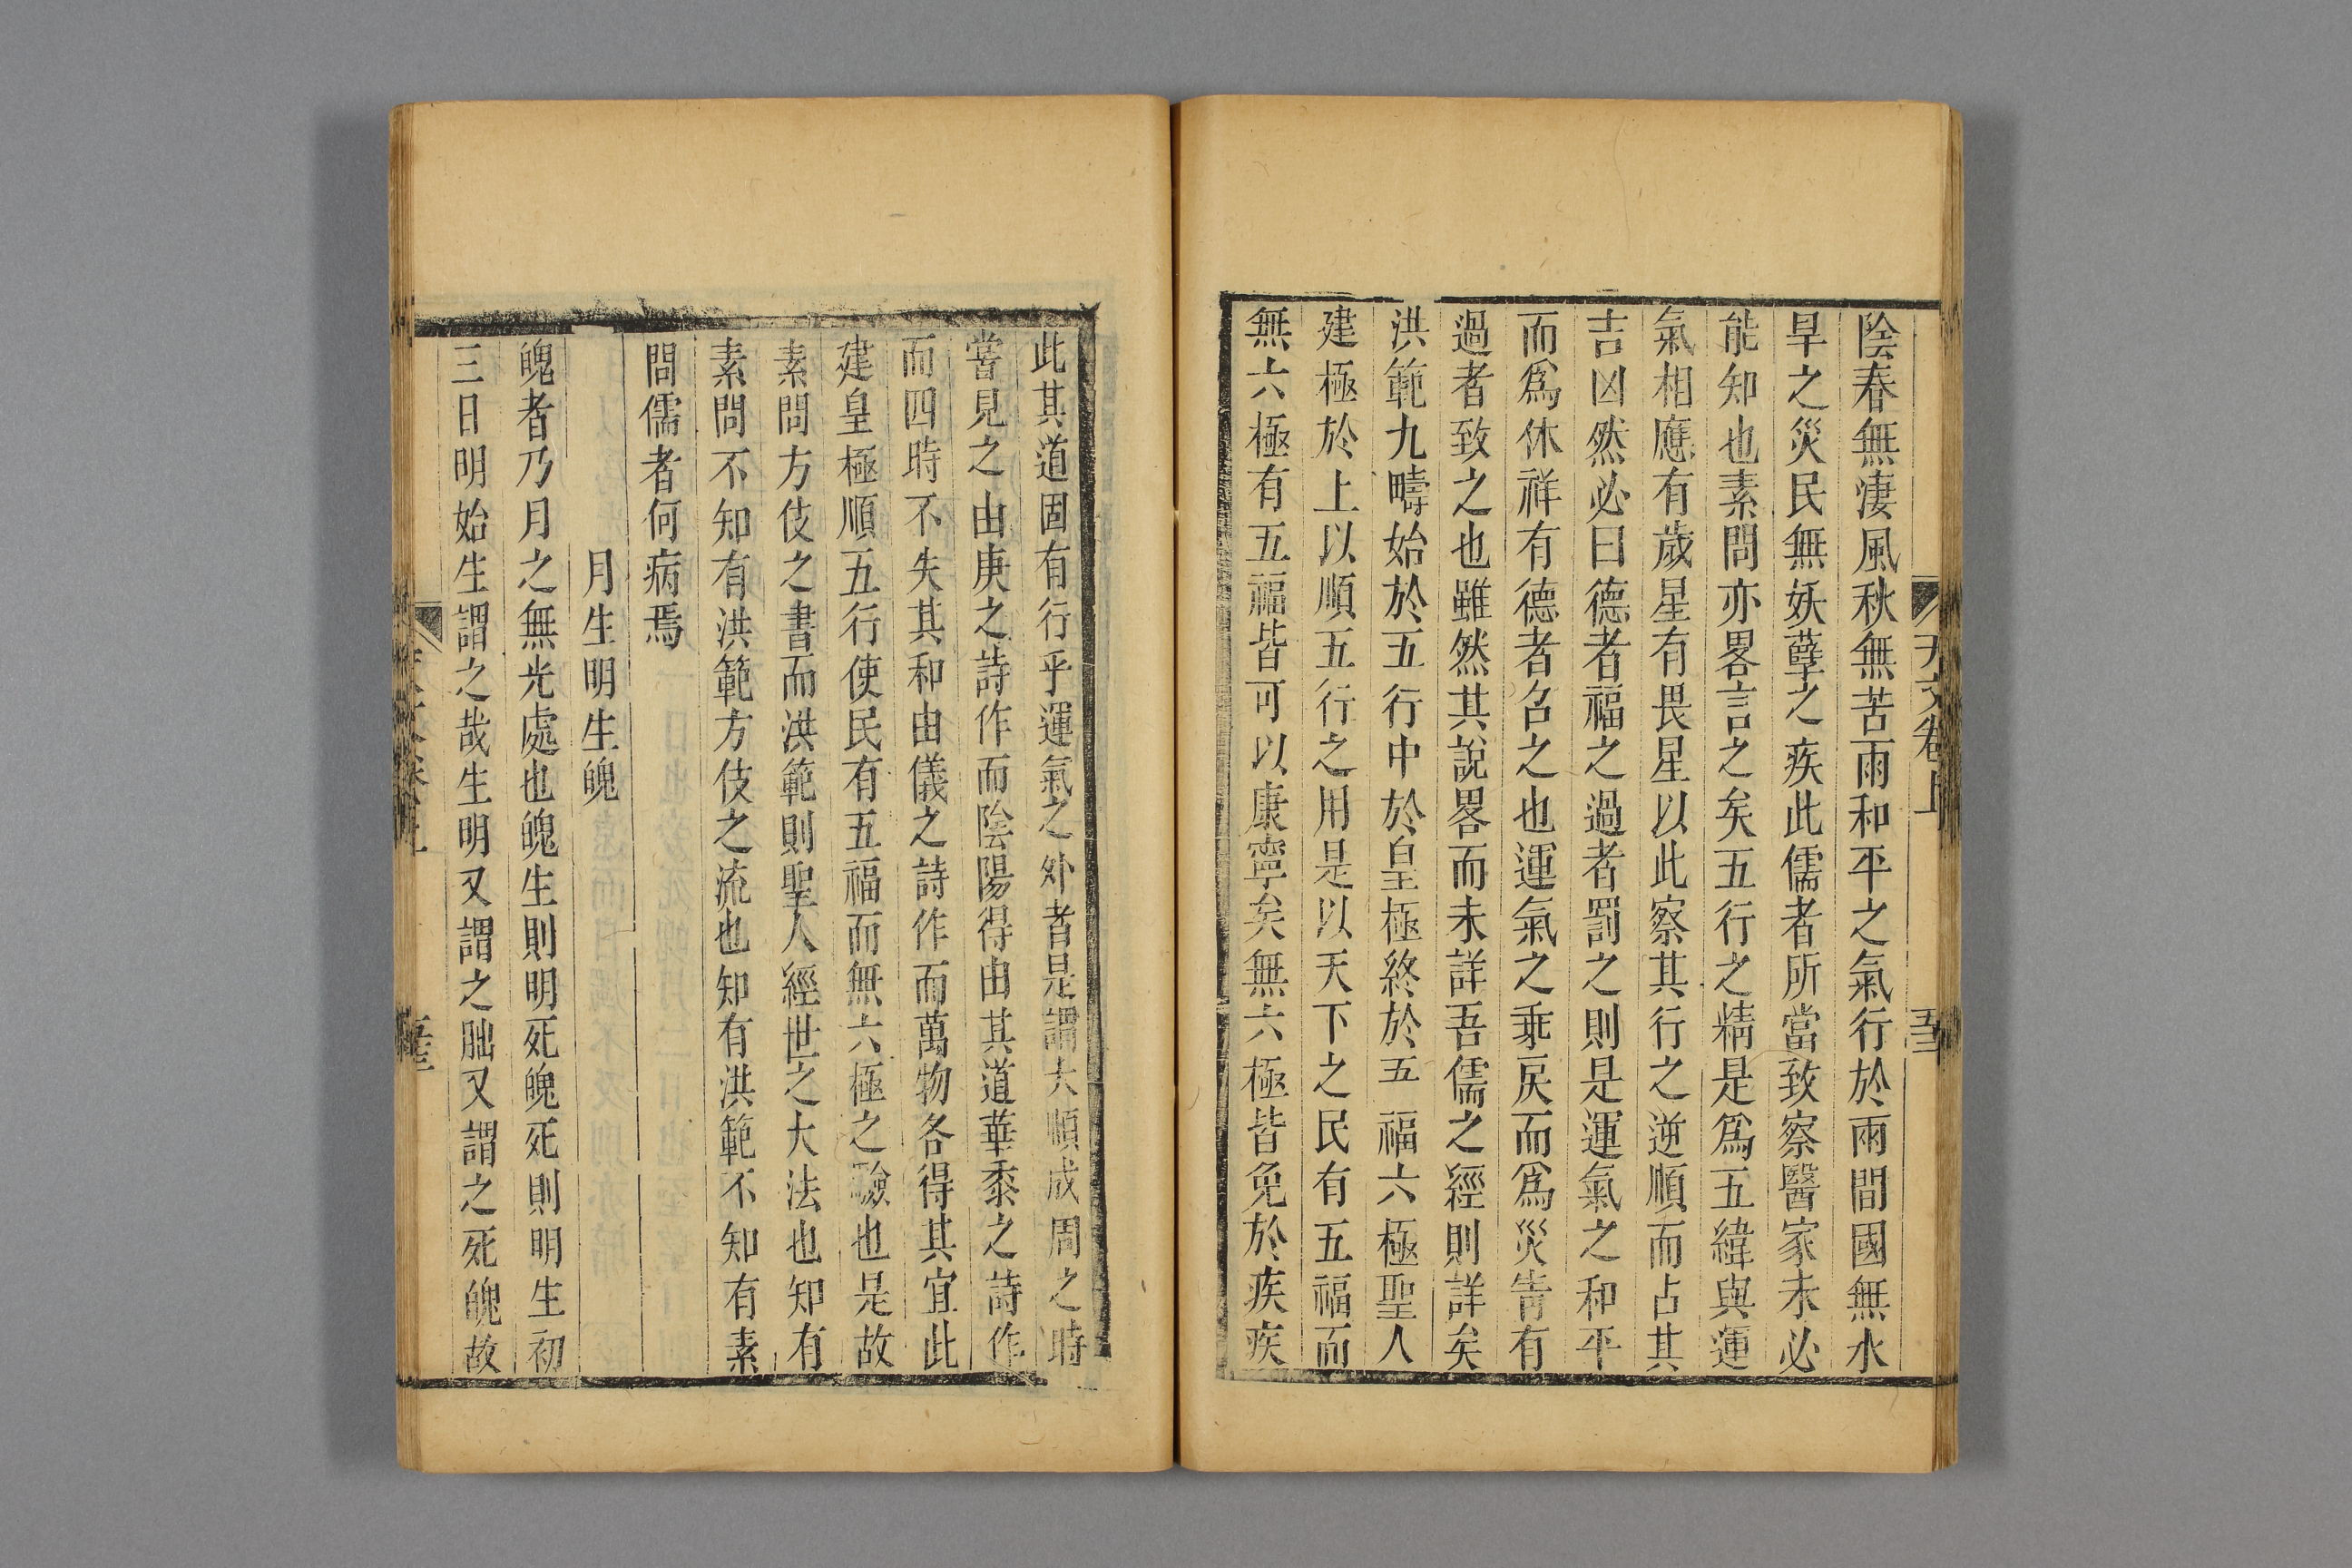 天文卷上
陰春無淒風秋無苦雨和平之氣行於兩間國無水
旱之災民無妖孽之疾此儒者所當致察醫家未必
能知也素問亦畧言之矣五行之精是爲五緯與運
氣相應有歲星有畏星以此察其行之逆順而占其
吉凶然必曰德者福之過者罰之則是運氣之和平
而爲休祥有德者召之也運氣之乖戾而爲災眚有
過者致之也雖然其說畧而未詳吾儒之經則詳矣
洪範九疇始於五行中於皇極終於五福六極聖人
建極於上以順五行之用是以天下之民有五福而
無六極有五福皆可以康寧矣無六極皆免於疾疾
此其道固有行乎運氣之外者是謂大順成周之時
嘗見之由庚之詩作而陰陽得由其道華黍之詩作
而四時不失其和由儀之詩作而萬物各得其宜此
建皇極順五行使民有五福而無六極之驗也是故
素問方伎之書而洪範則聖人經世之大法也知有
素問不知有洪範方伎之流也知有洪範不知有素
問儒者何病焉
月生明生魄
魄者乃月之無光處也魄生則明死魄死則明生初
三日明始生謂之哉生明又謂之朏又謂之死魄故